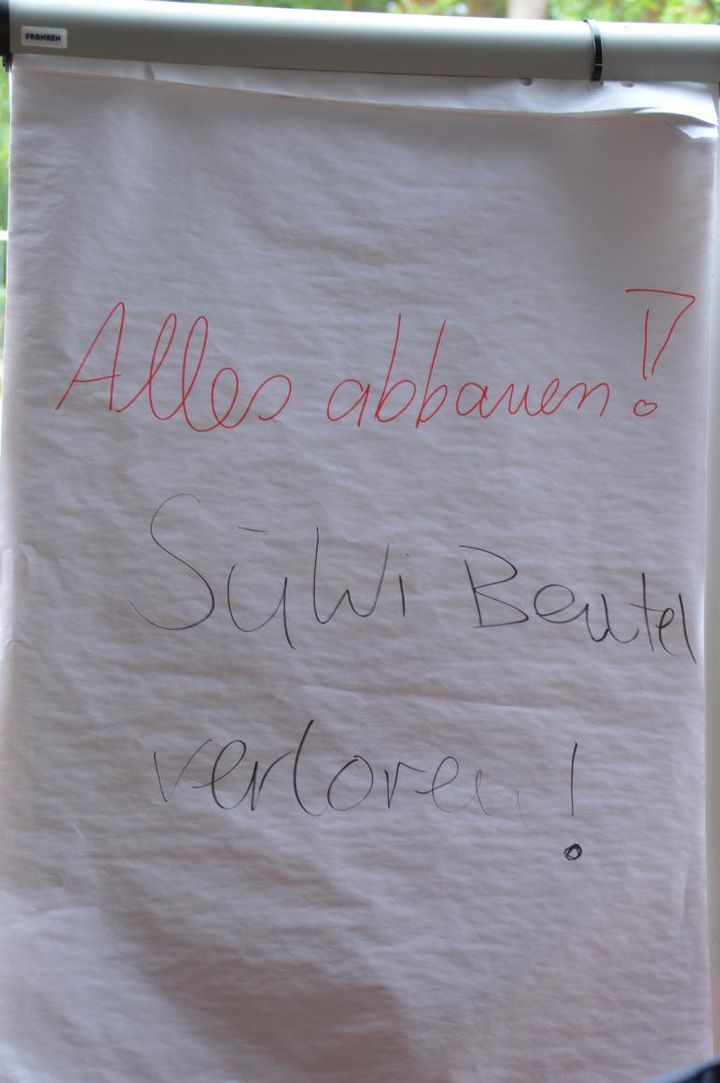 FRANKEN
Alles abbauen!
SüWi Beutel
verloren!